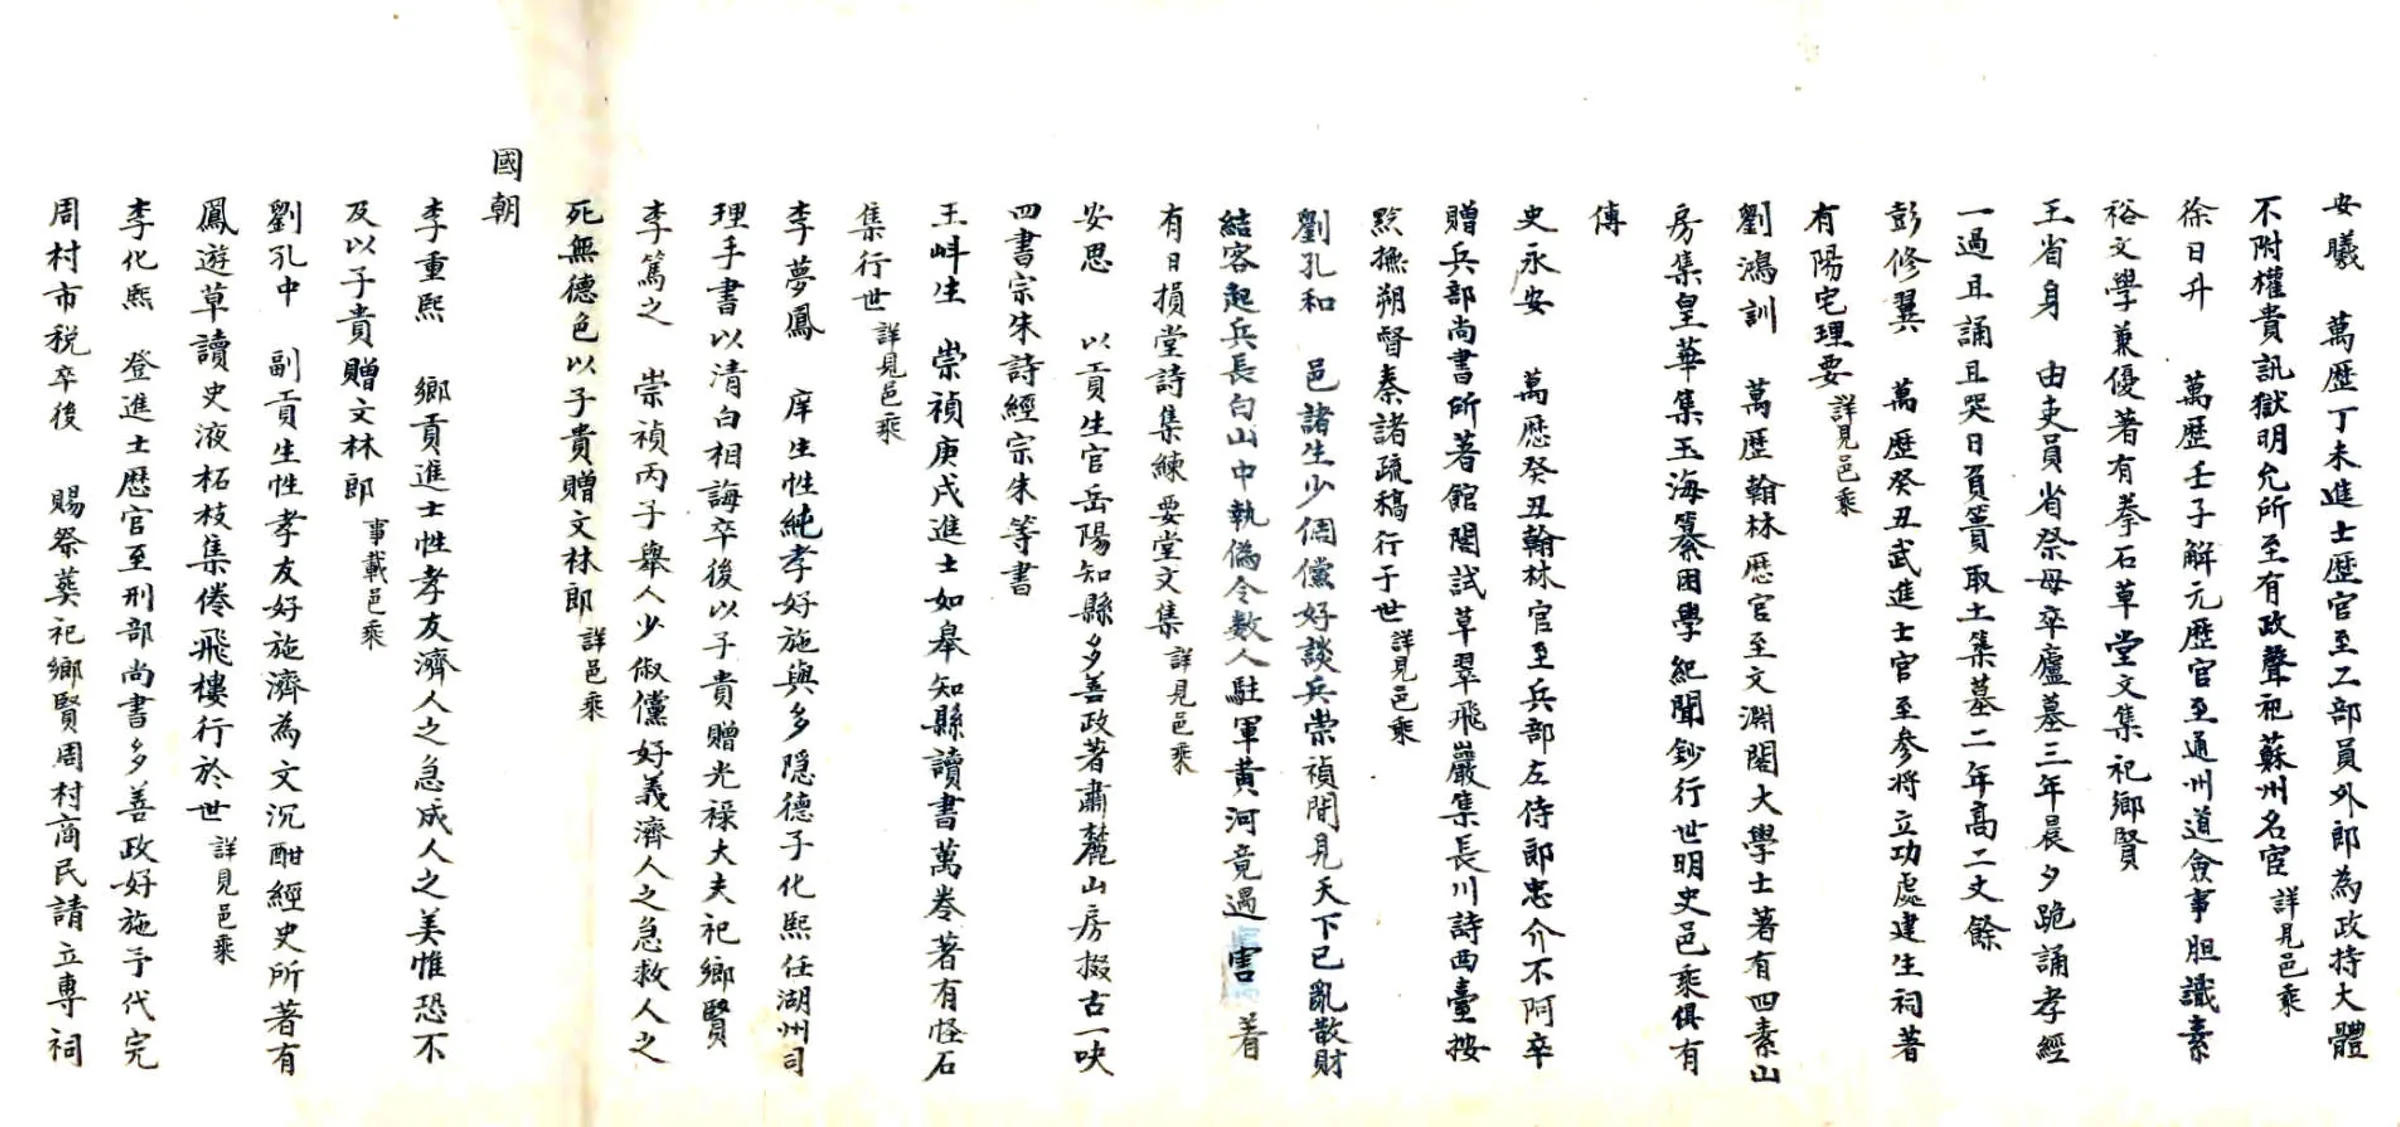 安曦　萬歷丁未進士歷官至工部員外郎為政持大體
不附權貴訊獄明允所至有政聲祀蘇州名宦詳見邑乘
徐日升　萬歷壬子解元歷官至通州道僉事胆識素
裕文學兼優著有拳石草堂文集祀鄉賢
王省身　由吏員省祭母卒廬墓三年晨夕跪誦孝經
一過且誦且哭日負蕢取土築墓二年高二丈餘
彭修翼　萬歷癸丑武進士官至參將立功處建生祠著
有陽宅理要詳見邑乘
劉鴻訓　萬歷翰林歷官至文淵閣大學士著有四素山
房集皇華集玉海纂困學紀聞鈔行世明史邑乘俱有
傳
史永安　萬歷癸丑翰林官至兵部左侍郎忠介不阿卒
贈兵部尚書所著館閣試草翠飛巖集長川詩西臺按
黔撫朔督秦諸疏稿行于世詳見邑乘
劉孔和　邑諸生少倜儻好談兵崇禎間見天下已亂散財
結客起兵長白山中執偽令数人駐軍黃河竟遇害　着
有日損堂詩集練要堂文集詳見邑乘
安思　以貢生官岳陽知縣多善政著肅麓山房掇古一吷
四書宗朱詩經宗朱等書
王㟁生　崇禎庚戌進士如皋知縣讀書萬卷著有怪石
集行世詳見邑乘
李夢鳳　庠生性純孝好施與多隱德子化熙任湖州司
理手書以清白相誨卒後以子貴贈光祿大夫祀鄉賢
李篤之　崇禎丙子舉人少俶儻好義濟人之急救人之
死無德色以子貴贈文林郎詳邑乘
國朝
李重熙　鄉貢進士性孝友濟人之急成人之美惟恐不
及以子貴贈文林郎事載邑乘
劉孔中　副貢生性孝友好施濟為文沉酣經史所著有
鳳遊草讀史液柘枝集倦飛樓行於世詳見邑乘
李化熙　登進士歷官至刑部尚書多善政好施予代完
周村市稅卒後　賜祭葬祀鄉賢周村商民請立專祠